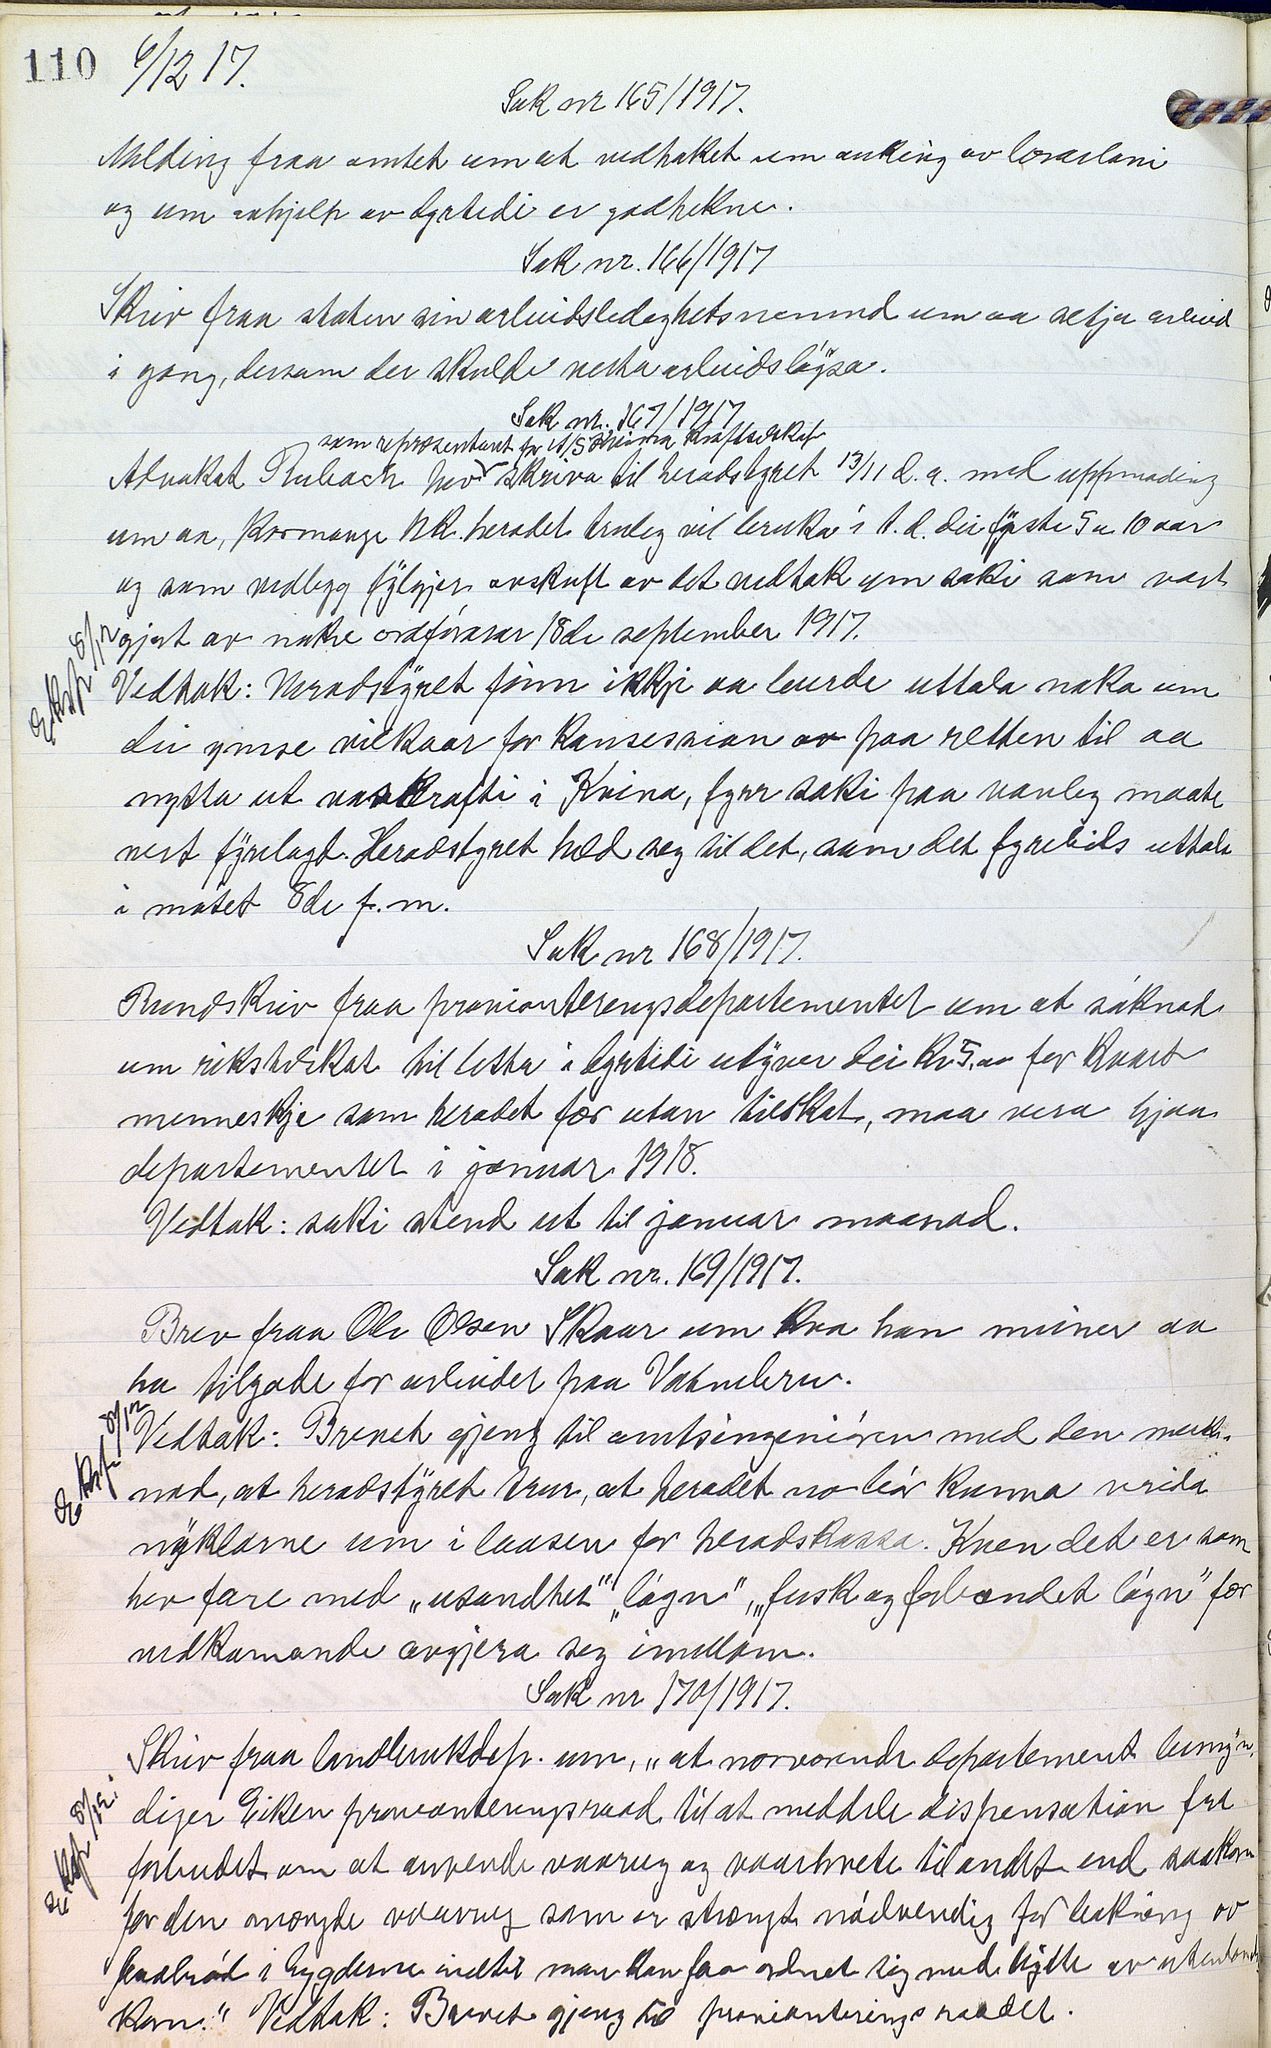 110 6/12 17.
Sak nr 165/1917.
Melding fraa amtet um at vedtaket um auking av
og um avhjelp av dyrtidi er godtekne.
Sak nr. 166/1917
Skriv fraa staten sin arbeidsledighetsnemnd um aa setja arbeid
i gang, dersom der skulde verta arbeidsløysa.
Sak nr. 167/1917
som representant for A/S Kvina Kraftselskap
Advokat Rubach hev skriva til heradstyret 13/11 d. a. med uppmoding
um aa, kormange HK. heradet truleg vil bruka i t. d. dei fyste 5 a 10 aar
og som vedlegg fylgjer avskrift av det vedtak um saki som vart
gjort av nokre ordførarar 18de september 1917.
Ekssp. 8/12
Vedtak: Heradstyret finn ikkje aa burde uttala noka um
dei ymse vilkaar for konsession av paa retten til aa
nytta ut vaskrafti i Kvina, fyrr saki paa vanleg maate
vert fyrelagt. Heradstyret held seg til det, som det fyrebils uttala
i møtet 8de f. m.
Sak nr 168/1917.
Rundskriv fraa provianteringsdepartementet um at søknad
um rikstilskot til letta i dyrtidi utyver dei kr 5,00 for kvart
menneskje som heradet fær utan tilskot, maa vera hjaa
departementet i januar 1918.
Vedtak: saki stend ut til januar maanad.
Sak nr. 169/1917.
Brev fraa Ole Olsen Skaar um kva han meiner aa
ha tilgode for arbeidet paa Vatnebru.
Ekssp. 8/12
Vedtak: Brevet gjeng til amtsingeniøren med den merk-
nad, at heradstyret trur, at heradet no bør kunna vrida
nyklarne um i laasen for heradskassa. Kven det er som
hev fare med „usandhet“ „løgn“, „fusk og forbandet løgn“ fær
vedkomande avgjera seg imillom.
Sak nr 170/1917.
Skriv fraa landbruksdep. um, „at nærværende departement bemyn-
diger Eiken provianteringsraad til at meddele dispensation fra
Ekssp. 8/12.
forbudet om at anvende vaarrug og vaarhvete til andet end saakorn
for den mængde vaarrug som er strengt nødvendig for bakning av
fladbrød i bygderne indtil man kan faa ordnet sig med bytte av utenlandsk
korn.“ Vedtak: Brevet gjeng til provianteringsraadet.